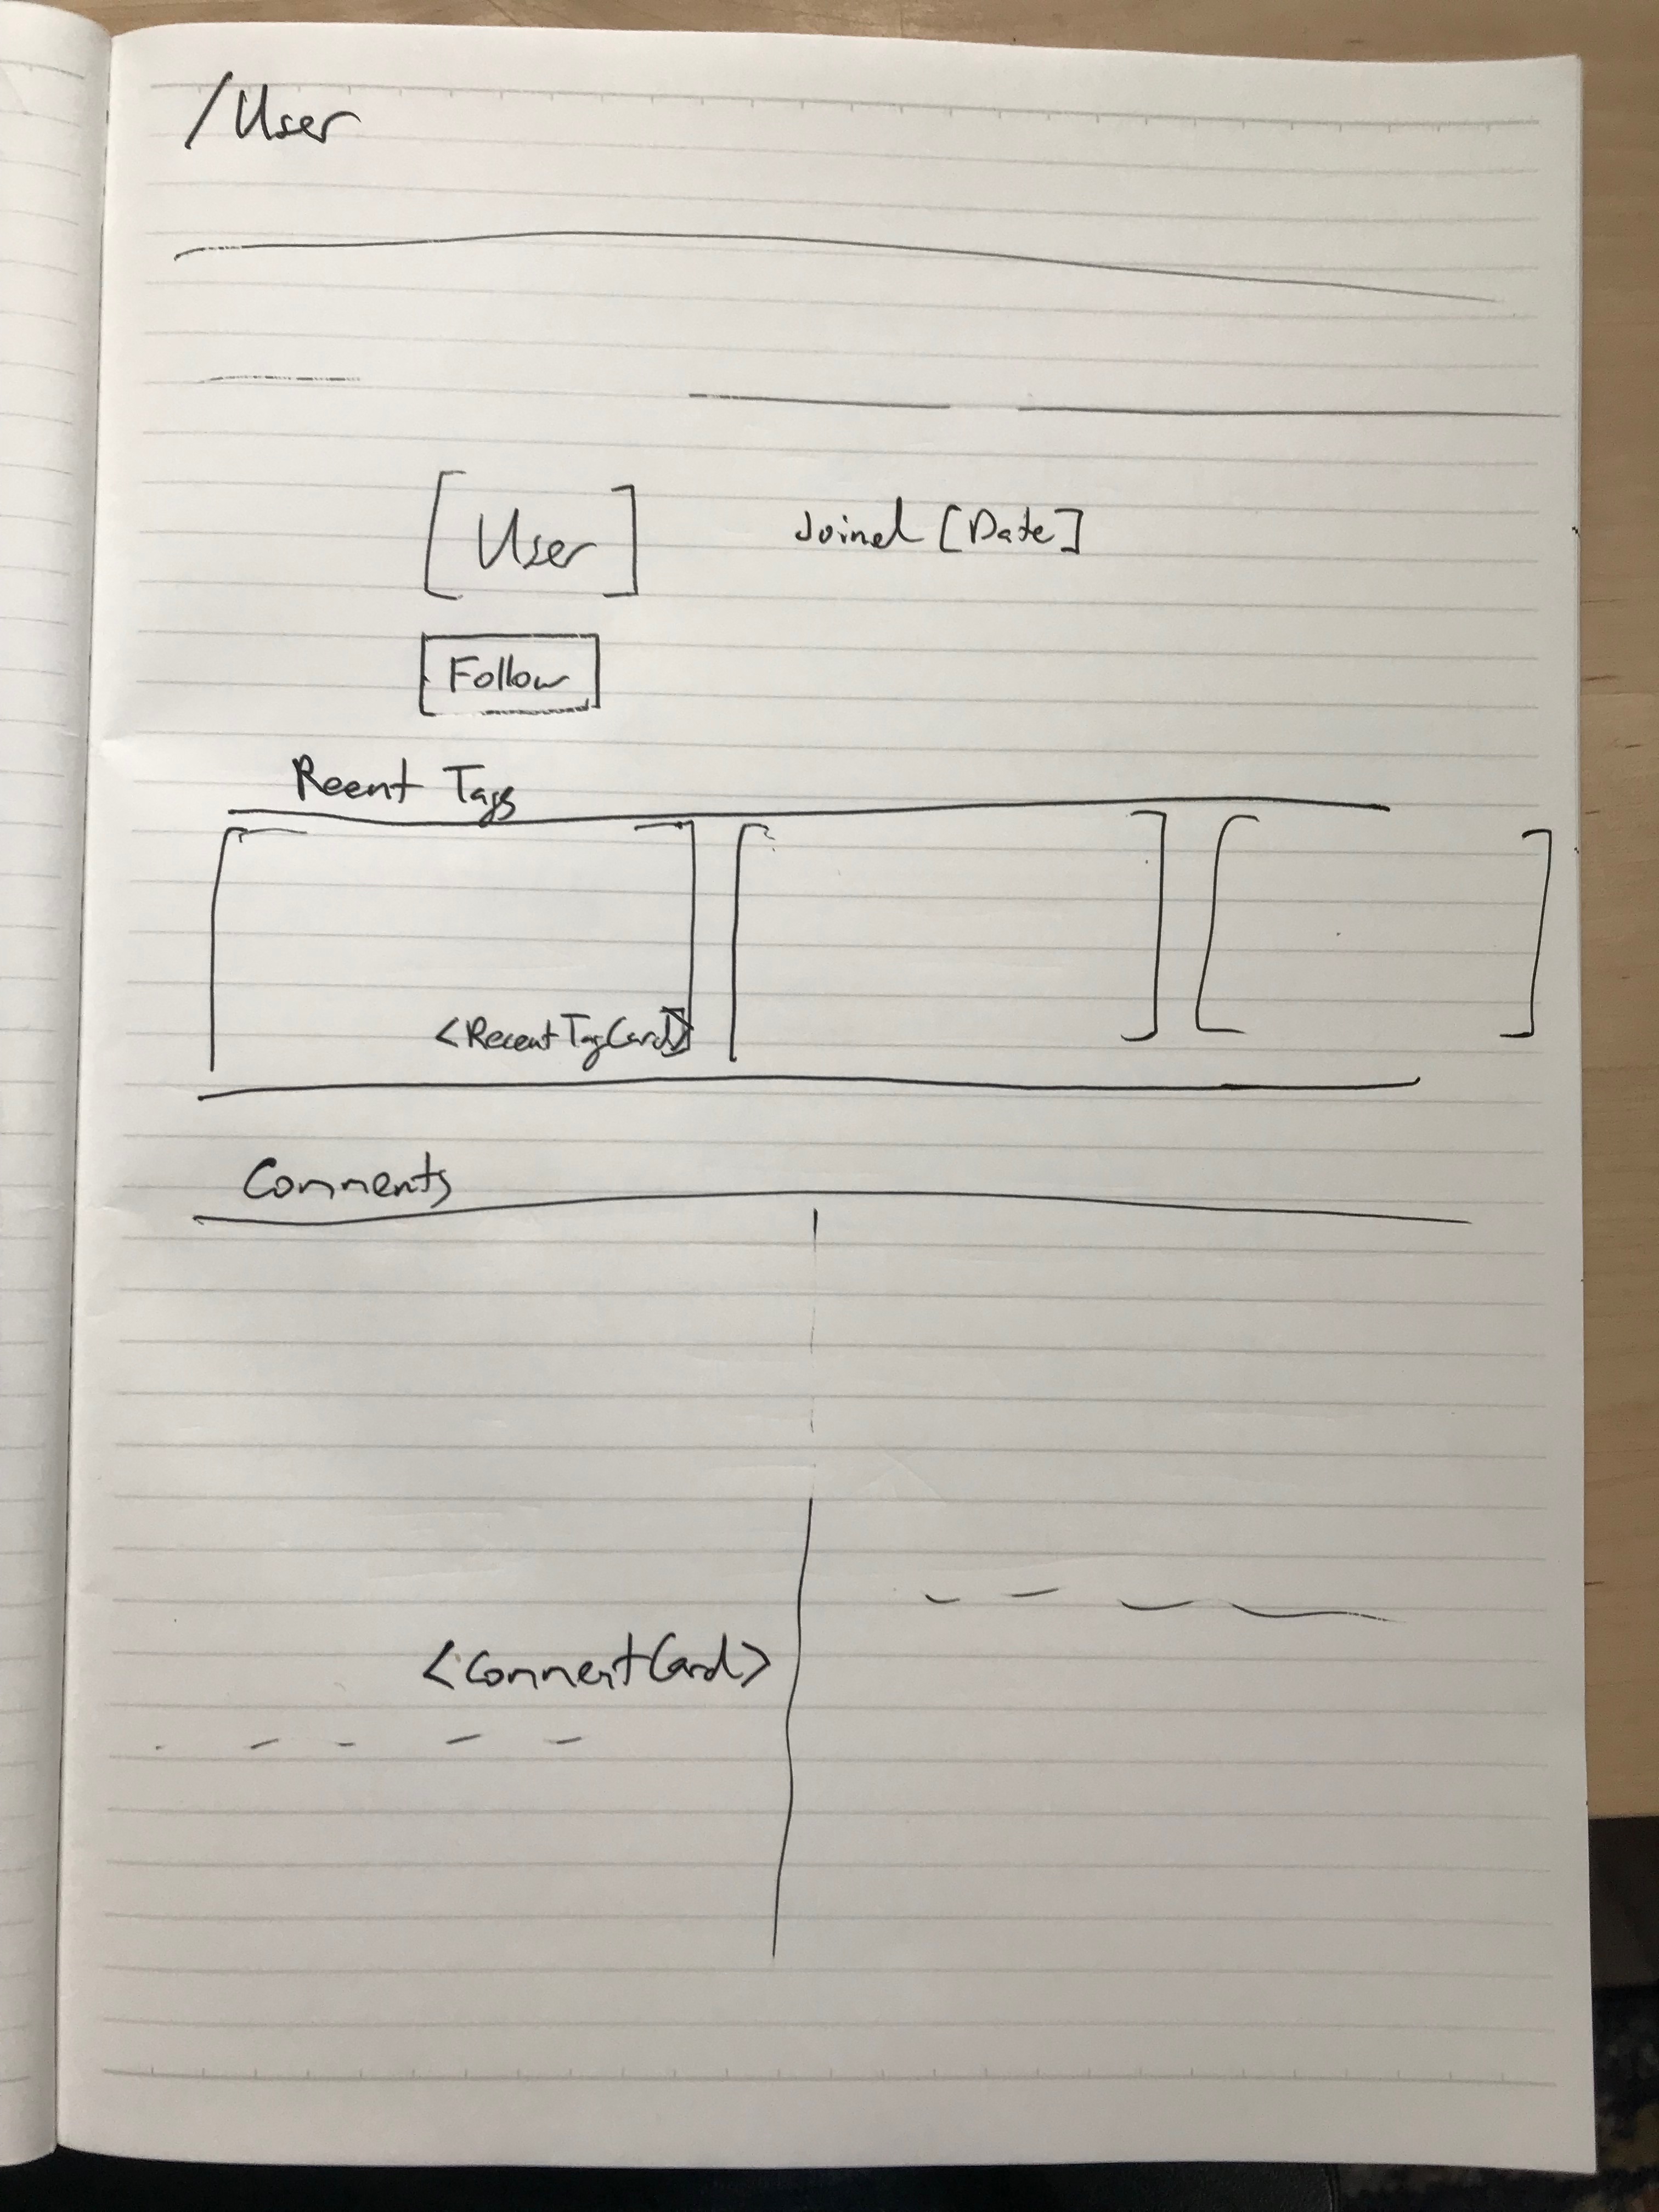 /User
[User] Joined [Date]
Follow
Recent Tags
<RecentTagCard>
Comments
<CommentCard>